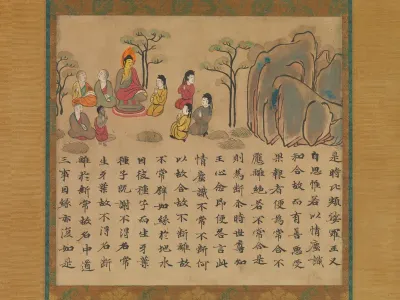 是時頻毗娑羅王又
自思惟若以情塵識
和合故而有善惡受
果報者便為常合不
應離絕若不常合是
則為斷尒時世尊知
王心念即便答言此
情塵識不常不斷何
以故合故不斷離故
不常譬如緣於地水
因彼種子而生牙葉
種子既謝不得名常
生牙葉故不得名斷
離於斷常故名中道
三事因緣亦復如是